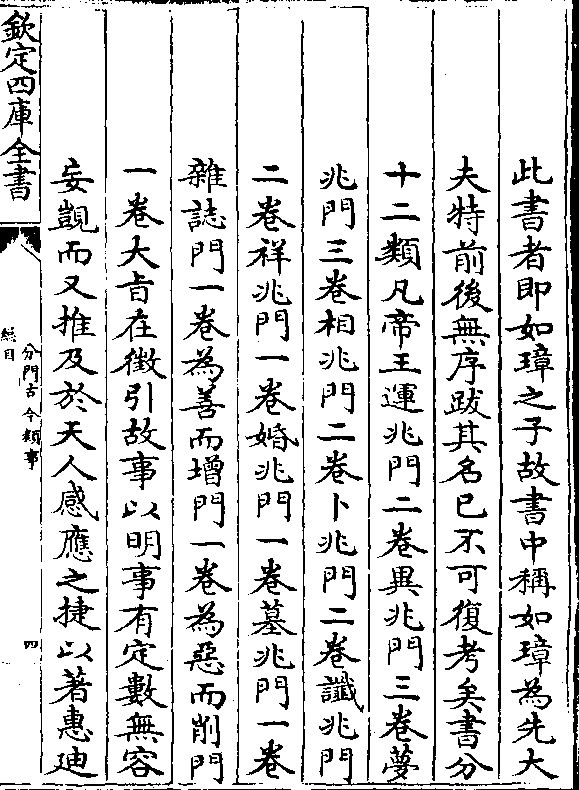 此書者即如璋之子故書中稱如璋為先大
夫特前後無序跋其名已不可復考矣書分
十二類凡帝王運兆門二卷異兆門三卷夢
兆門三卷相兆門二卷卜兆門二卷讖兆門
二卷祥兆門一卷婚兆門一卷墓兆門一卷
雜誌門一卷為善而增門一卷為惡而削門
一卷大旨在徵引故事以明事有定數無容
妄覬而又推及於天人感應之捷以著惠迪
欽定四庫全書
分門古今類事
總目
四